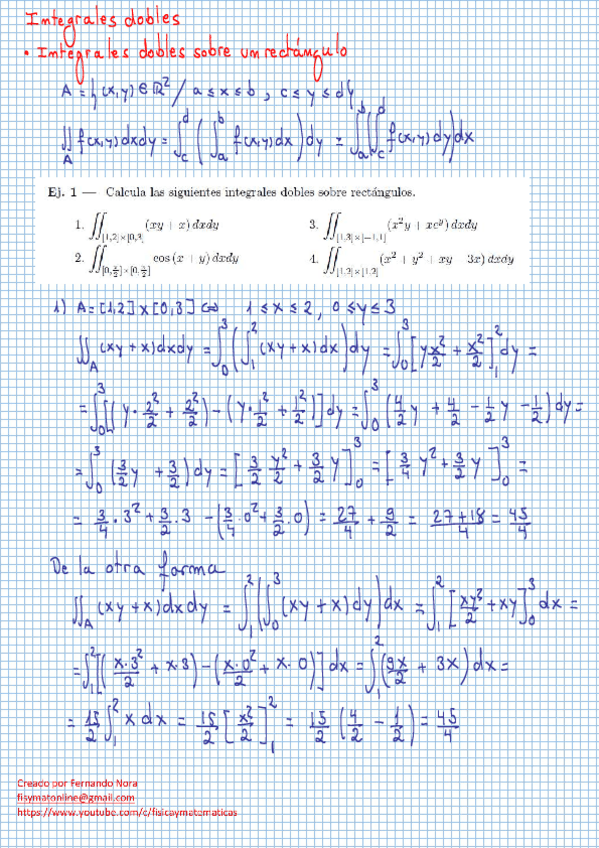 Integrales dobles
• Integrales dobles sobre un rectángulo
A = {(x,y) ∈ ℝ² / a ≤ x ≤ b , c ≤ y ≤ d}
∬_A f(x,y) dxdy = ∫_c^d (∫_a^b f(x,y) dx) dy = ∫_a^b (∫_c^d f(x,y) dy) dx
Ej. 1 — Calcula las siguientes integrales dobles sobre rectángulos.
1. ∬_{[1,2]×[0,3]} (xy + x) dxdy
3. ∬_{[1,3]×[−1,1]} (x²y + xe^y) dxdy
2. ∬_{[0,π/2]×[0,π/2]} cos(x + y) dxdy
4. ∬_{[1,2]×[1,2]} (x² + y² + xy 3x) dxdy
1) A = [1,2] x [0,3] ⇔ 1 ≤ x ≤ 2, 0 ≤ y ≤ 3
∬_A (xy + x) dxdy = ∫_0^3 (∫_1^2 (xy + x) dx) dy = ∫_0^3 [y x²/2 + x²/2]_1^2 dy =
= ∫_0^3 [(y · 2²/2 + 2²/2) − (y · 1²/2 + 1²/2)] dy = ∫_0^3 (4/2 y + 4/2 − 1/2 y − 1/2) dy =
= ∫_0^3 (3/2 y + 3/2) dy = [3/2 y²/2 + 3/2 y]_0^3 = [3/4 y² + 3/2 y]_0^3 =
= 3/4 · 3² + 3/2 · 3 − (3/4 · 0² + 3/2 · 0) = 27/4 + 9/2 = 27+18/4 = 45/4
De la otra forma
∬_A (xy + x) dxdy = ∫_1^2 (∫_0^3 (xy + x) dy) dx = ∫_1^2 [xy²/2 + xy]_0^3 dx =
= ∫_1^2 [(x·3²/2 + x·3) − (x·0²/2 + x·0)] dx = ∫_1^2 (9x/2 + 3x) dx =
= 15/2 ∫_1^2 x dx = 15/2 [x²/2]_1^2 = 15/2 (4/2 − 1/2) = 45/4
Creado por Fernando Nora
fisymatonline@gmail.com
https://www.youtube.com/c/fisicaymatematicas